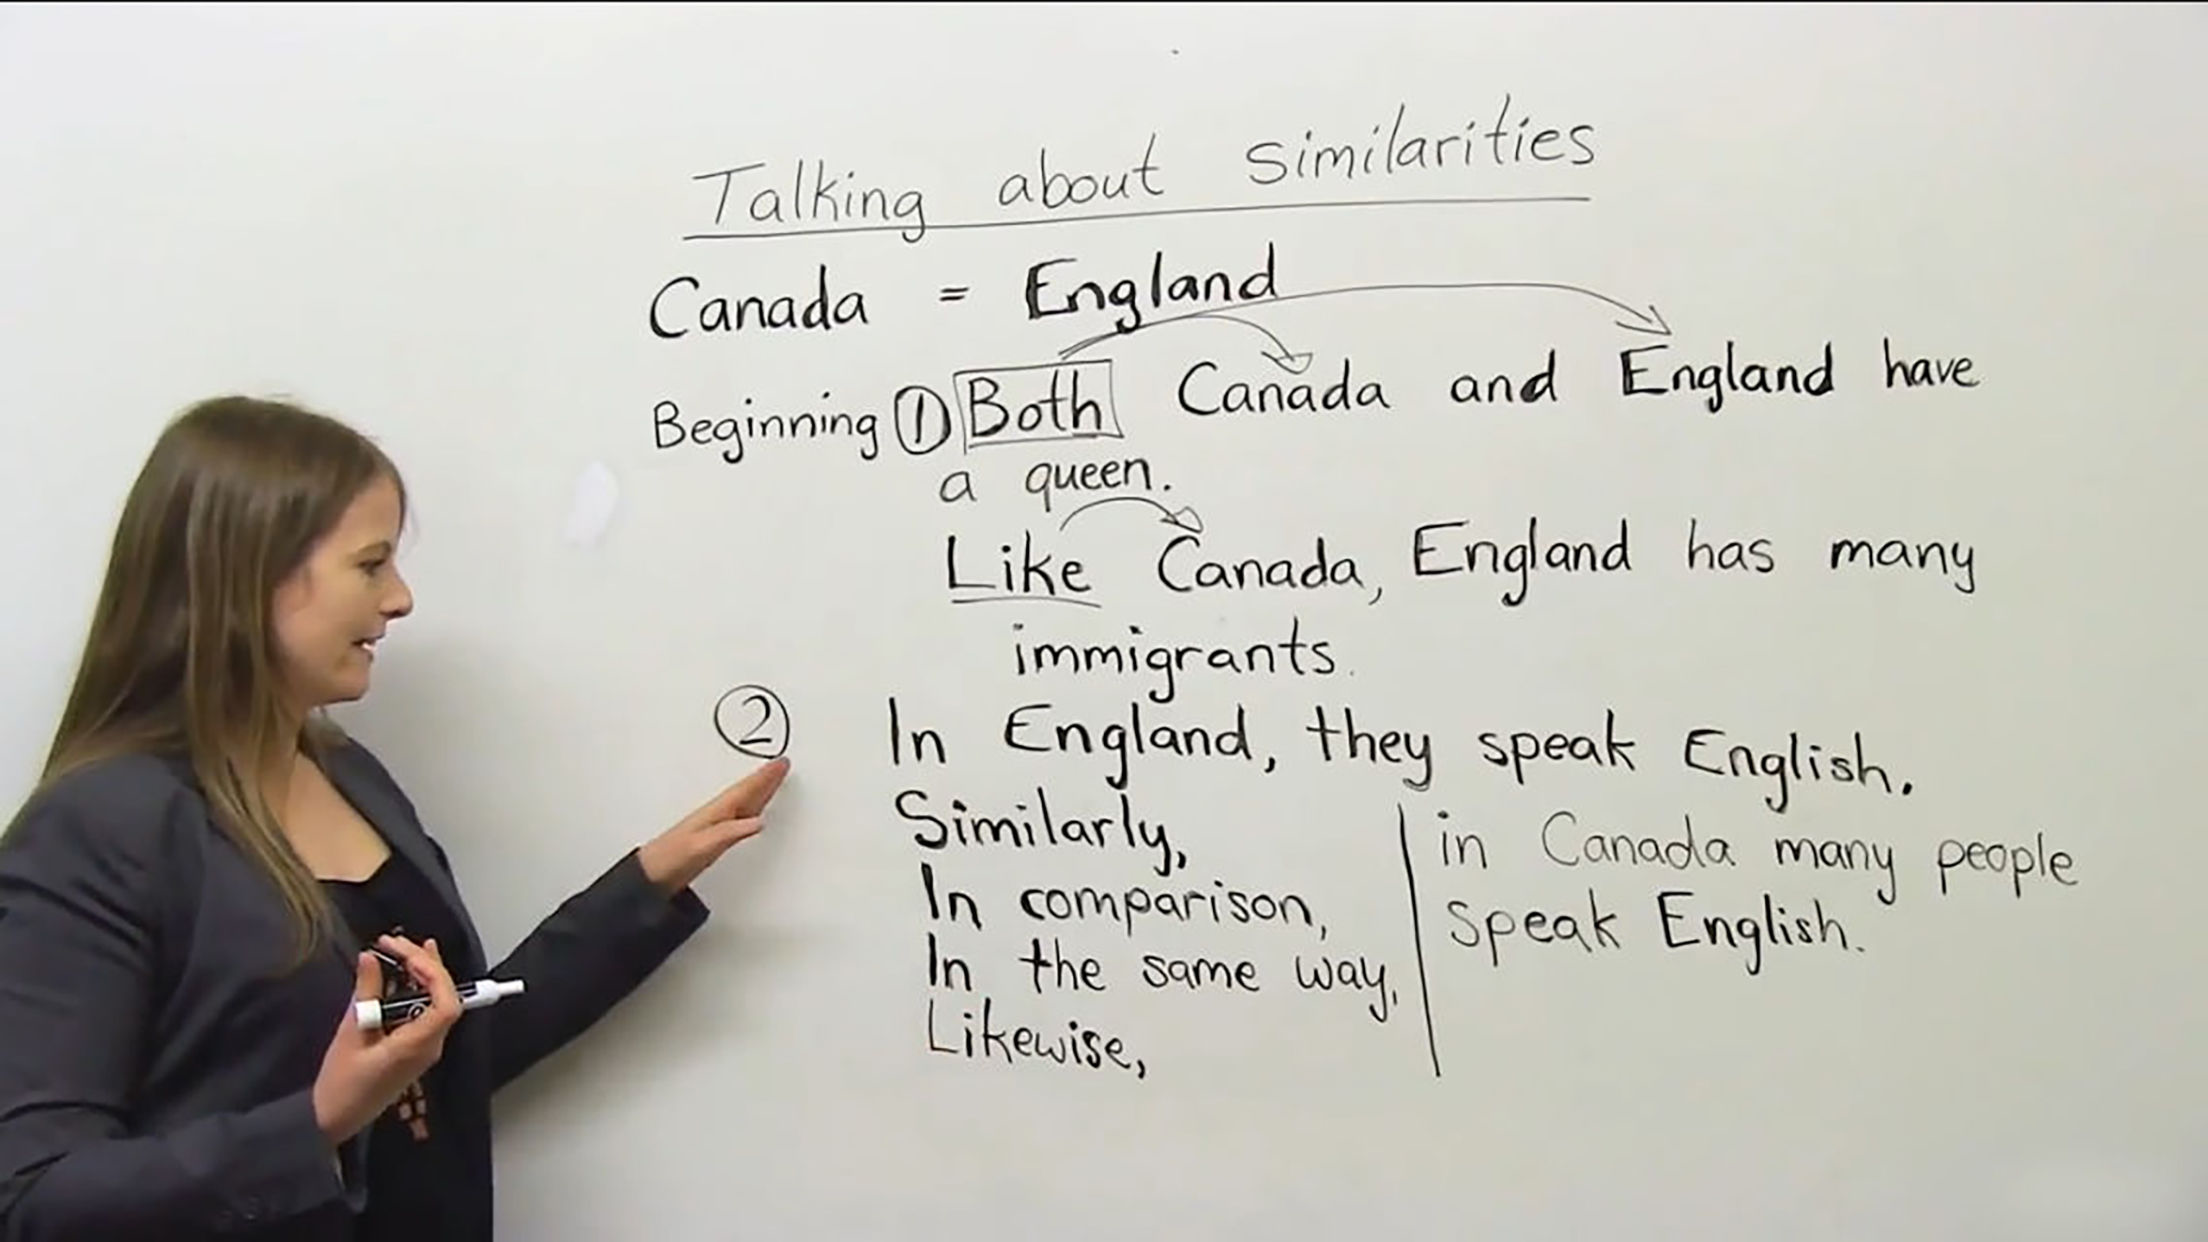 Talking about Similarities
Canada = England
Beginning ① Both Canada and England have
a queen.
Like Canada, England has many
immigrants.
② In England, they speak English.
Similarly,
In comparison,
In the same way,
Likewise,
in Canada many people
speak English.